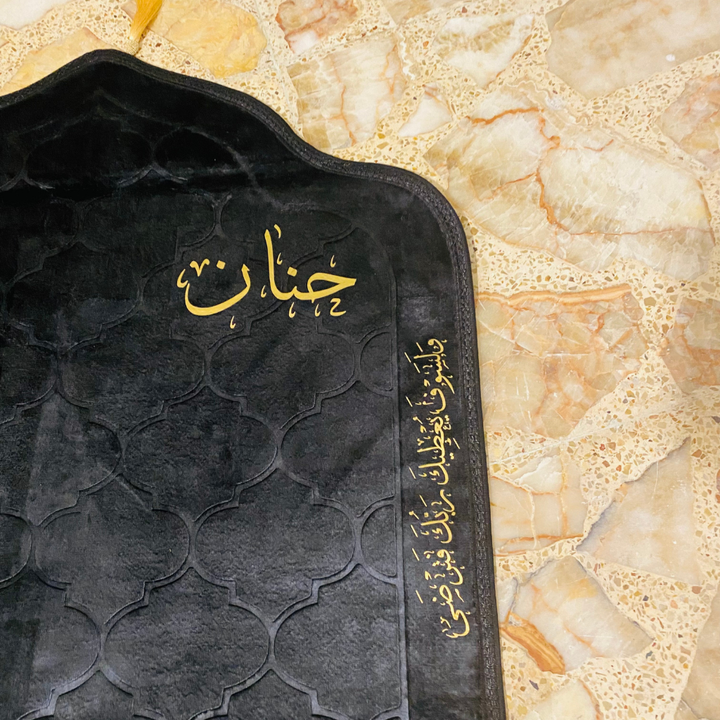 حنان
وَلَسَوْفَ يُعْطِيكَ رَبُّكَ فَتَرْضَى